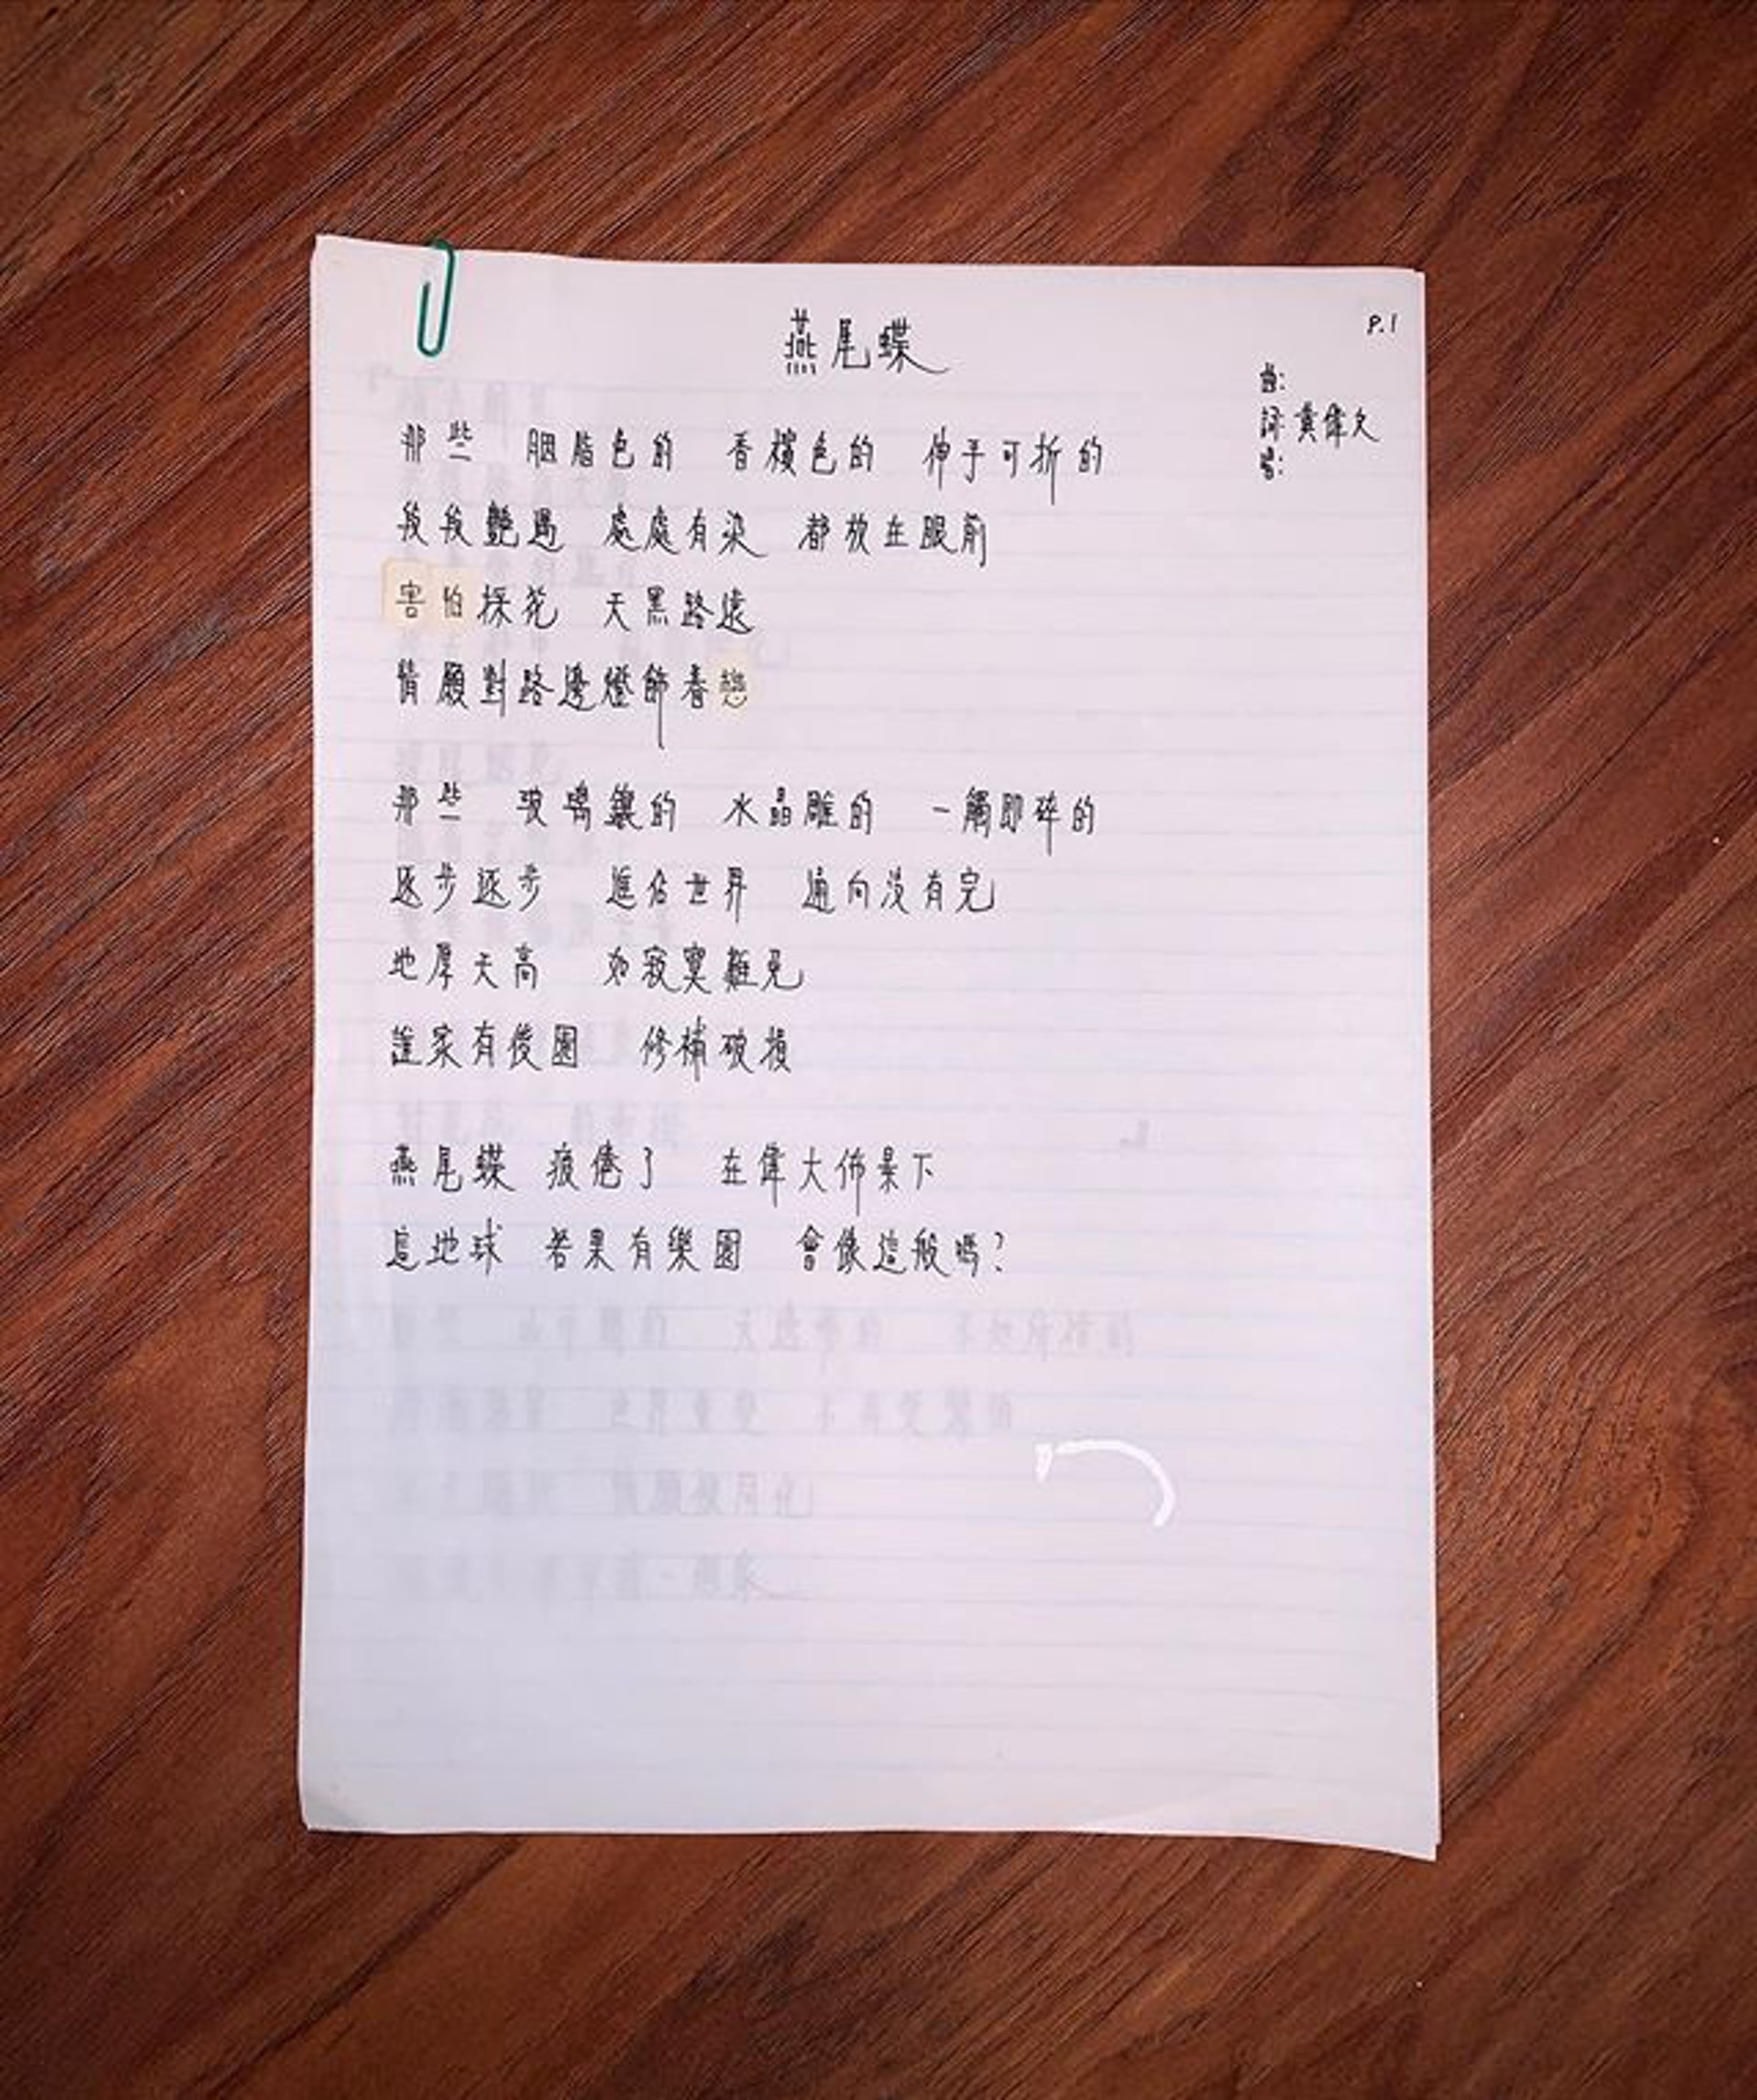 燕尾蝶
P.1
曲:
詞:黃偉文
唱:
那些 胭脂色的 香檳色的 伸手可折的
段段艷遇 處處有染 都放在眼前
害怕採花 天黑路遠
情願對路邊燈飾眷戀
那些 玻璃鑲的 水晶雕的 一觸即碎的
逐步逐步 進佔世界 通向沒有完
地厚天高 如寂寞難免
誰家有後園 修補破損
燕尾蝶 疲倦了 在偉大佈景下
這地球 若果有樂園 會像這般嗎?